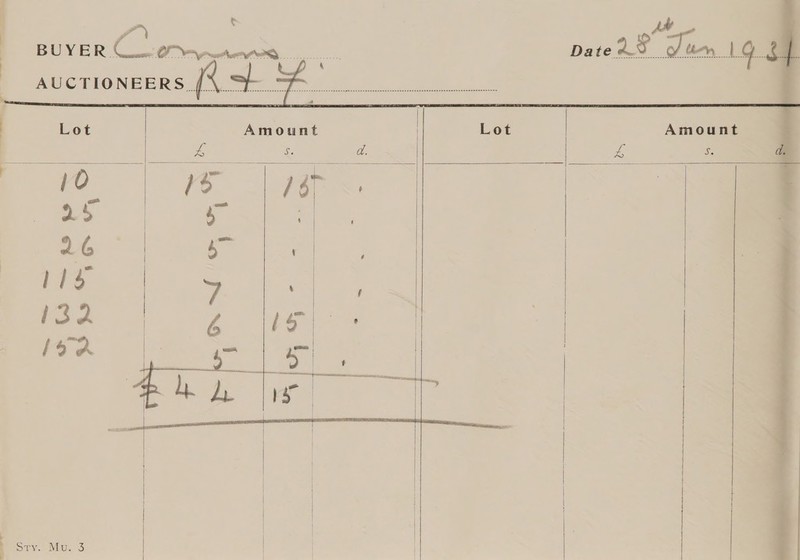 BUYER Comins Date 28th Jan 1931
AUCTIONEERS R & Y.
Lot Amount Lot Amount
£ s. d. £ s. d.
10 15 15 .
25 5 . .
26 5 . .
115 7 . .
132 6 15 .
152 5 5 .
£44 15
STY. MU. 3